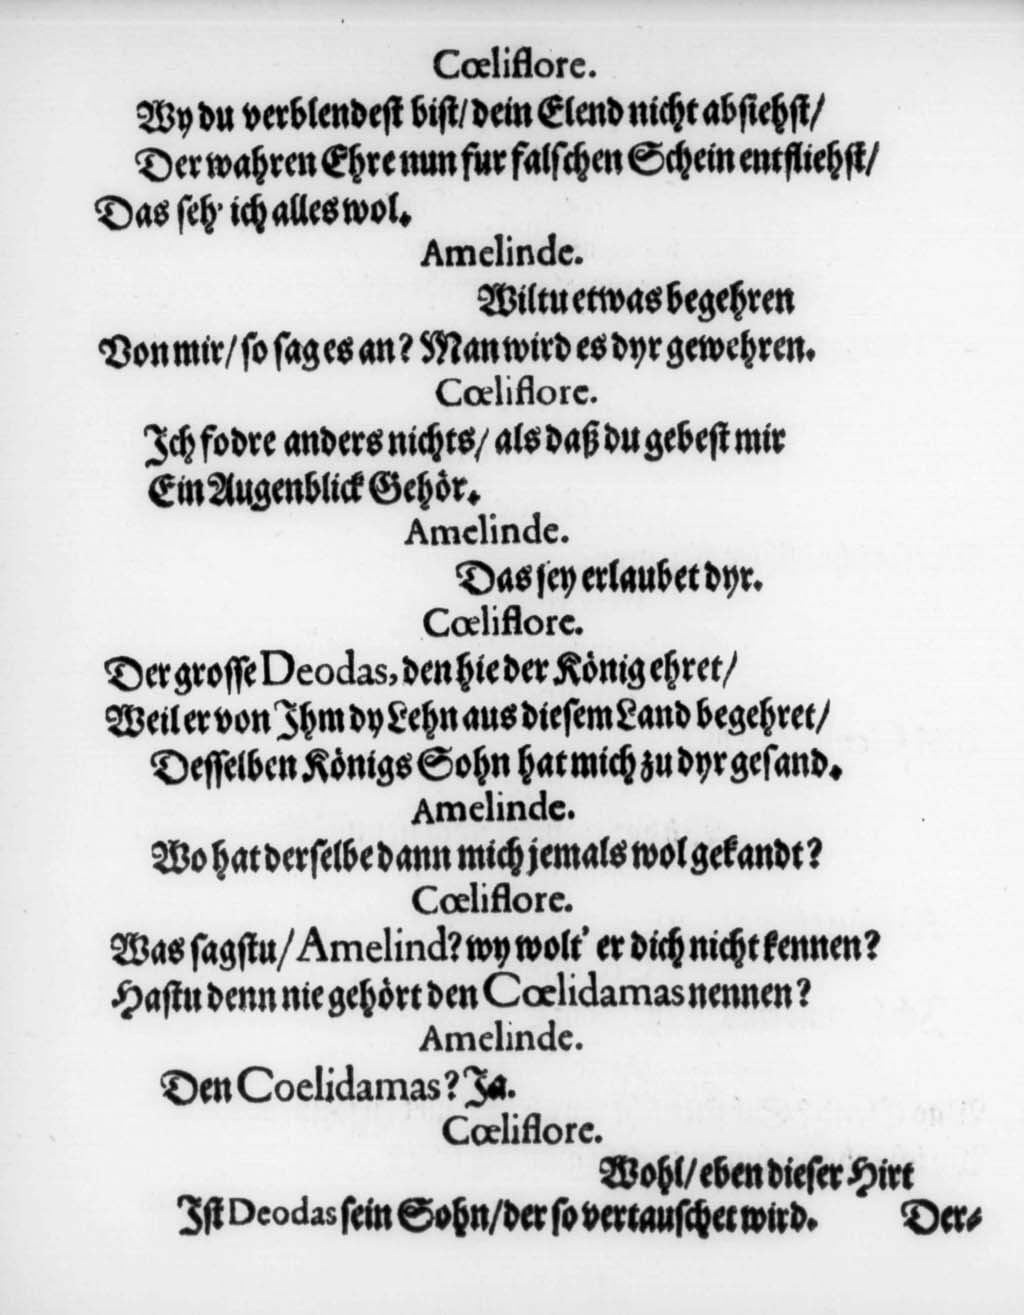 Cœliflore.
Wy du verblendest bist/ dein Elend nicht absiehst/
Der wahren Ehre nun fur falschen Schein entfliehst/
Das seh' ich alles wol.
Amelinde.
Wiltu etwas begehren
Von mir/ so sag es an? Man wird es dyr gewehren.
Cœliflore.
Ich fodre anders nichts/ als daß du gebest mir
Ein Augenblick Gehör.
Amelinde.
Das sey erlaubet dyr.
Cœliflore.
Der grosse Deodas, den hie der König ehret/
Weil er von Ihm dy Lehn aus diesem Land begehret/
Desselben Königs Sohn hat mich zu dyr gesand.
Amelinde.
Wo hat derselbe dann mich jemals wol gekandt?
Cœliflore.
Was sagstu/ Amelind? wy wolt' er dich nicht kennen?
Hastu denn nie gehört den Cœlidamas nennen?
Amelinde.
Den Coelidamas? Ja.
Cœliflore.
Wohl/ eben dieser Hirt
Ist Deodas sein Sohn/ der so vertauschet wird. Der-